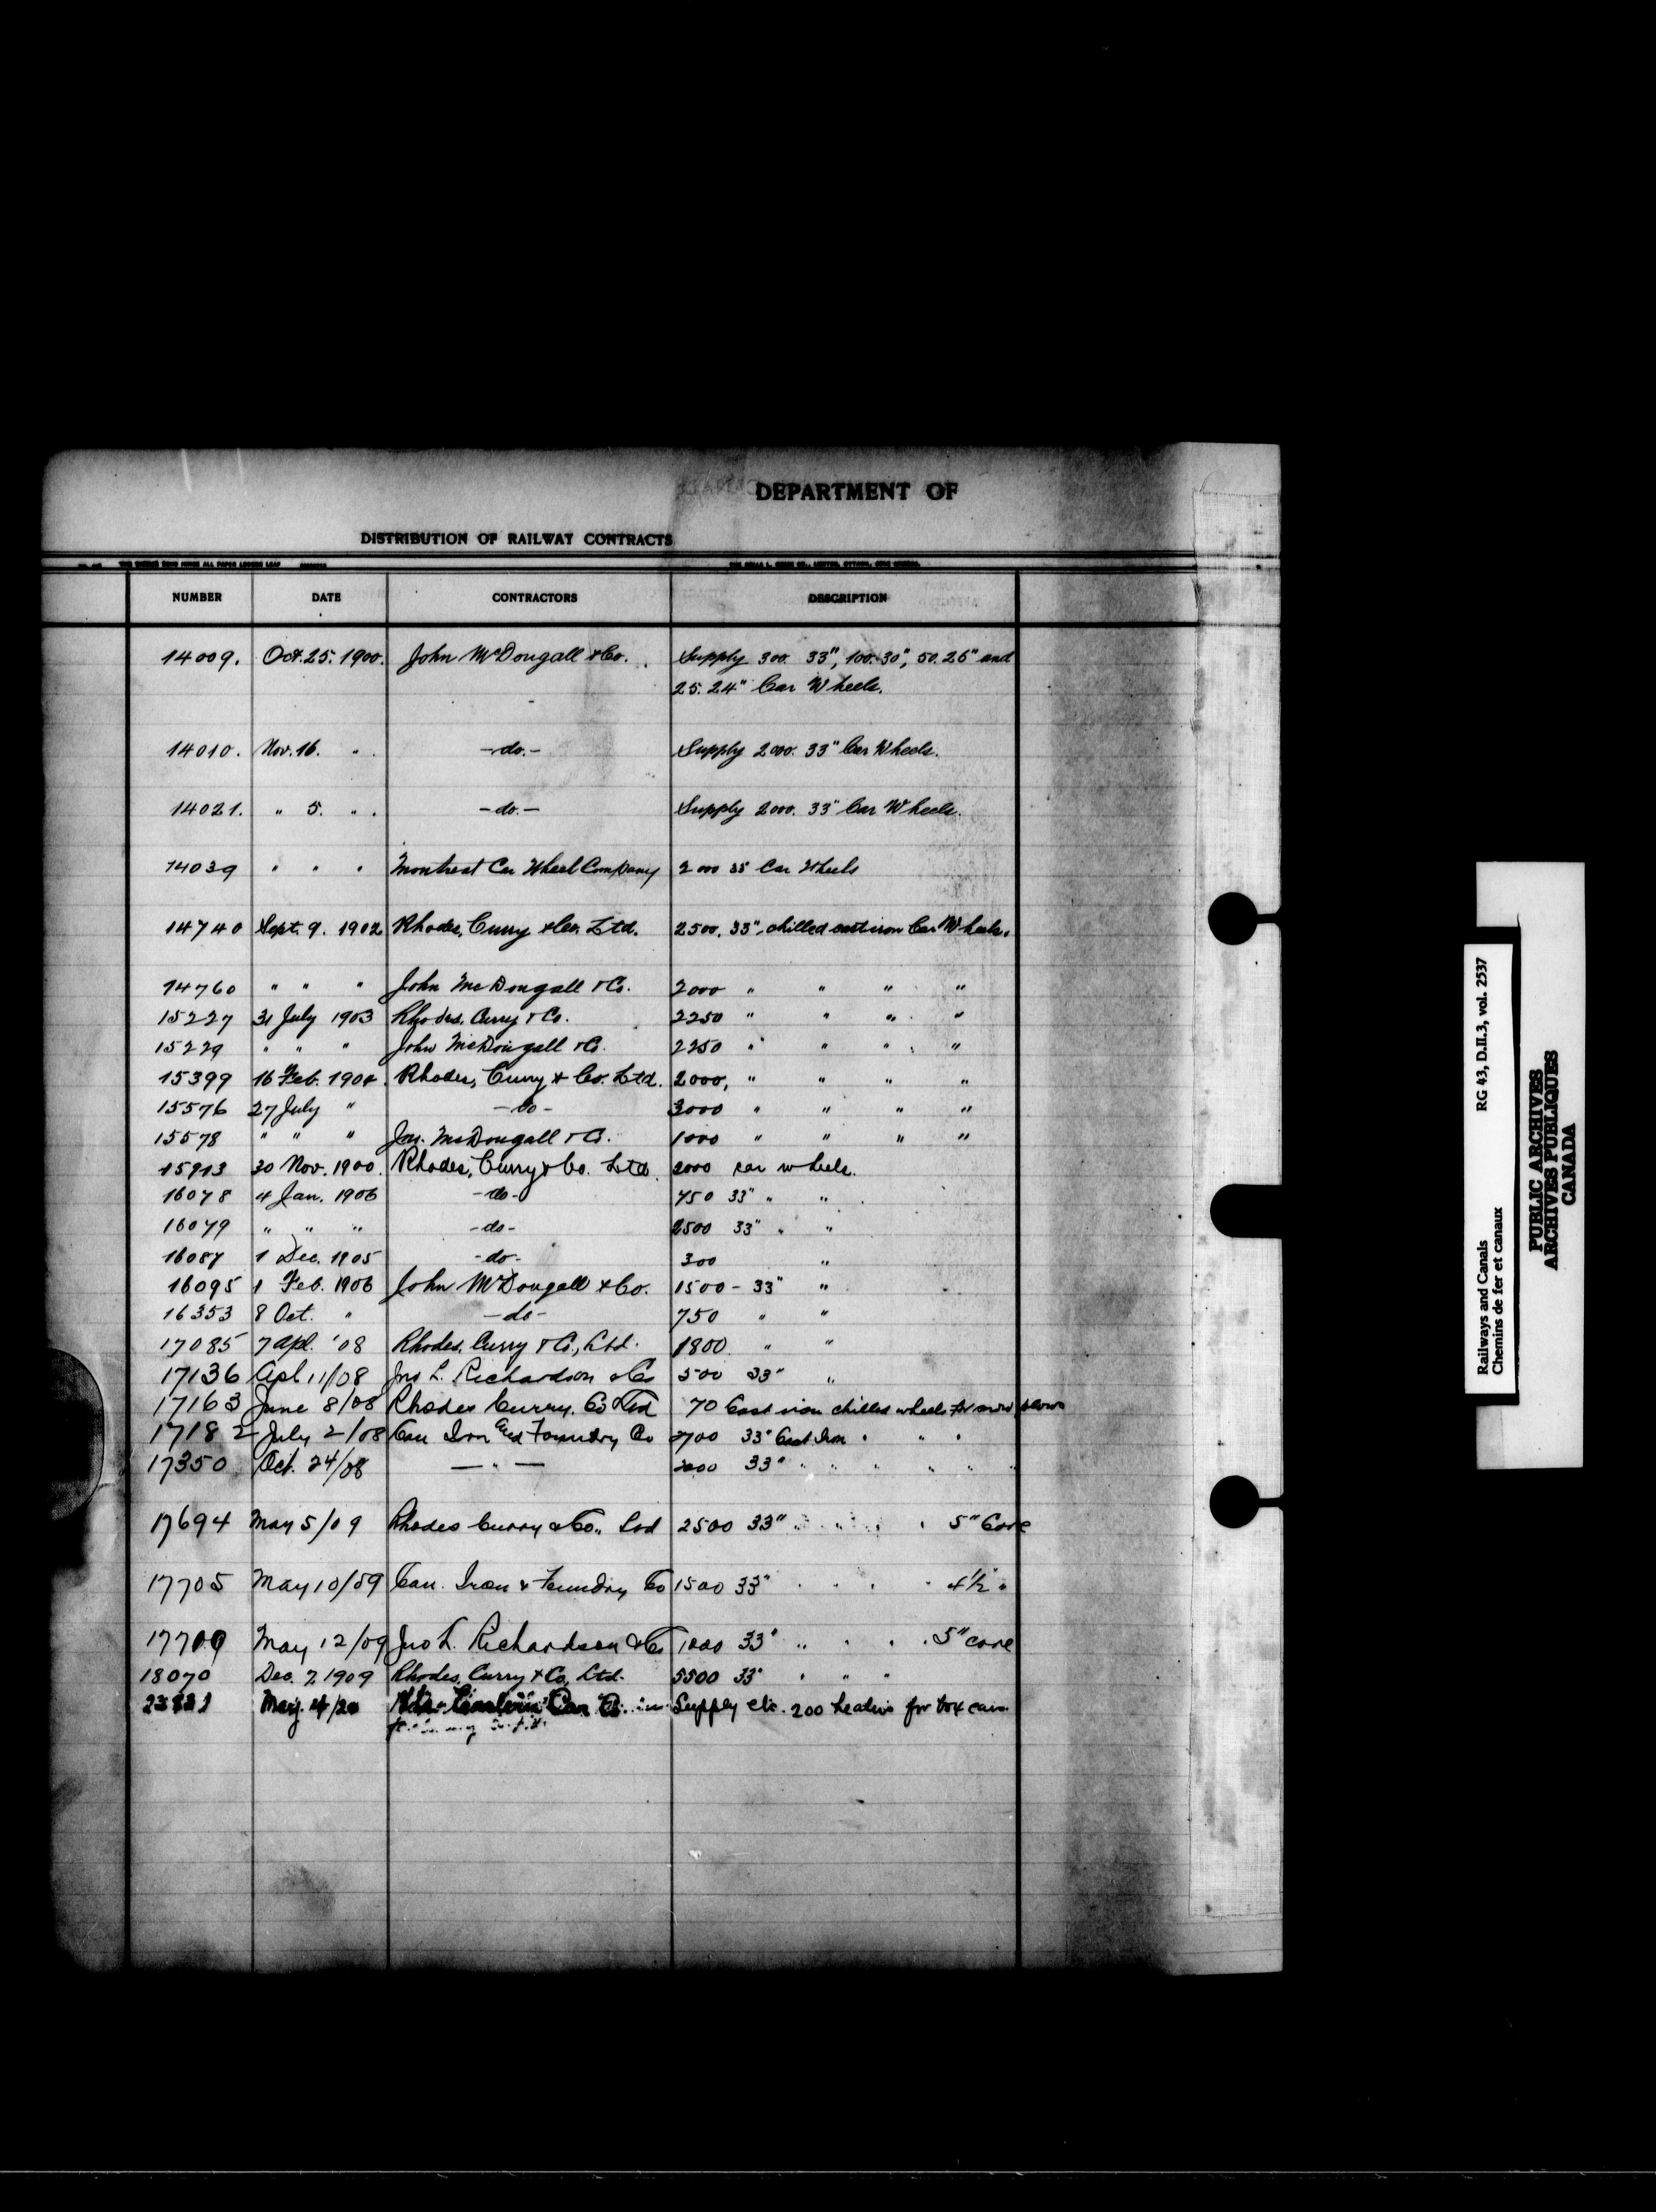 DEPARTMENT OF
DISTRIBUTION OF RAILWAY CONTRACTS
NUMBER DATE CONTRACTORS DESCRIPTION
14009. Oct. 25. 1900. John McDougall & Co. Supply 300. 33", 100. 30", 50. 26" and
25. 24" Car Wheels.
14010. Nov. 16. " -do.- Supply 2000. 33" Car Wheels.
14021. " 5. " -do.- Supply 2000. 33" Car Wheels.
14039 " " " Montreal Car Wheel Company 2000 33" Car Wheels
14740 Sept. 9. 1902 Rhodes, Curry & Co. Ltd. 2500. 33". chilled cast iron Car Wheels.
14760 " " " John McDougall & Co. 2000 " " " "
15227 31 July 1903 Rhodes, Curry & Co. 2250 " " " "
15229 " " " John McDougall & Co. 2250 " " " "
15399 16 Feb. 1904. Rhodes, Curry & Co. Ltd. 2000, " " " "
15576 27 July " -do- 3000 " " " "
15578 " " " Jno. McDougall & Co. 1000 " " " "
15913 30 Nov. 1900. Rhodes, Curry & Co. Ltd. 2000 car wheels.
16078 4 Jan. 1906 -do- 750 33" " "
16079 " " " -do- 2500 33" " "
16087 1 Dec. 1905 -do- 300 "
16095 1 Feb. 1906 John McDougall & Co. 1500 - 33" "
16353 8 Oct. " -do- 750 " "
17085 7 Apl. '08 Rhodes, Curry & Co., Ltd. 1800 " "
17136 Apl 11/08 Jno L. Richardson & Co 500 33" "
17163 June 8/08 Rhodes Curry. Co Ltd 70 Cast iron chilled wheels for snow plows
17182 July 2/08 Can Iron and Foundry Co 2700 33" Cast Iron " " "
17350 Oct. 24/08 — " — 2000 33" " " " " " "
17694 May 5/09 Rhodes Curry & Co., Ltd 2500 33" " " " " 5" Core
17705 May 10/09 Can. Iron & Foundry Co 1500 33" " " " " 4½" "
17709 May 12/09 Jno L. Richardson & Co 1000 33" " " " " 5" core
18070 Dec. 7. 1909 Rhodes, Curry & Co, Ltd. 5500 33" " " "
May 4/20 Car Co. Supply etc. 200 heaters for box cars.
Railways and Canals RG 43, D.II.3, vol. 2537
Chemins de fer et canaux
PUBLIC ARCHIVES
ARCHIVES PUBLIQUES
CANADA